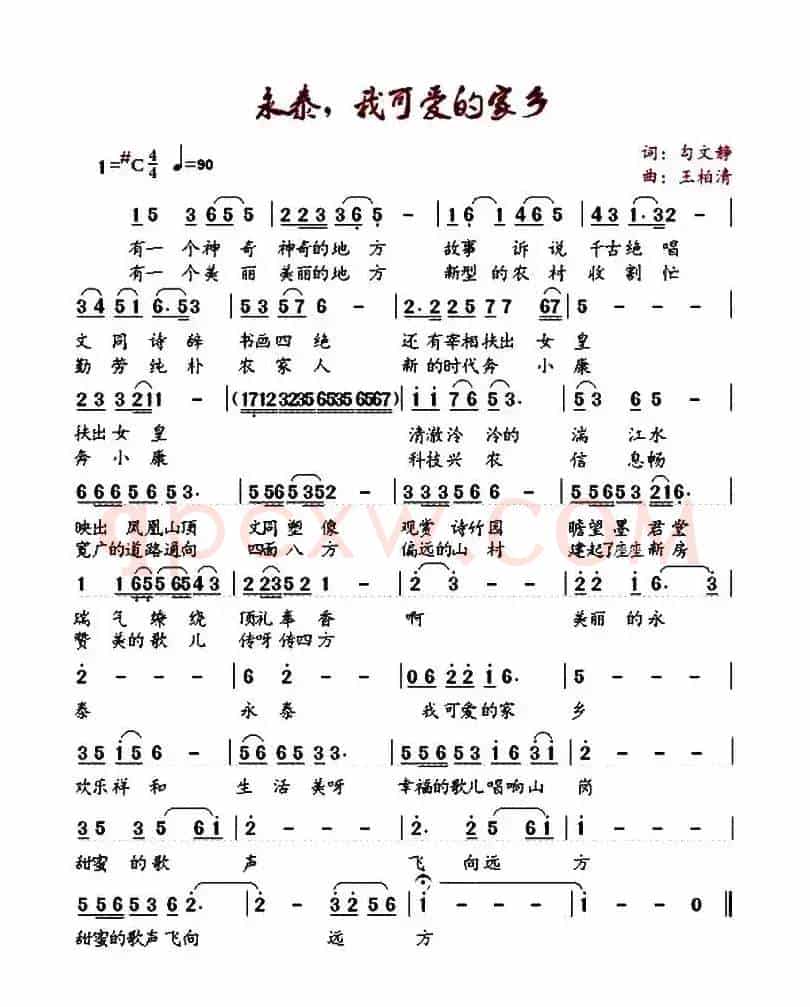 永泰，我可爱的家乡
1=#C 4/4 ♩=90
词：勾文静
曲：王柏清
1 5 3 6 5 5 | 2 2 3 3 6 5 - | 1 6 1 4 6 5 | 4 3 1. 3 2 |
有一个神奇 神奇的地方 故事 诉说 千古绝唱
有一个美丽 美丽的地方 新型的农村收割忙
3 4 5 1 6. 5 3 | 5 3 5 7 6 - | 2. 2 2 5 7 7 6 7 | 5 - - - |
文同诗辞 书画四绝 还有宰相扶出女皇
勤劳纯朴 农家人 新的时代奔小康
2 3 3 2 1 1 - | (1712 3235 6535 6567) | i i 7 6 5 3. | 5 3 6 5 - |
扶出女皇 清澈泠泠的 湍江水
奔小康 科技兴农 信息畅
6 6 6 5 6 5 3. | 5 5 6 5 3 5 2 - | 3 3 3 5 6 6 - | 5 5 6 5 3 2 1 6. |
映出凤凰山顶 文同塑像 观赏诗竹园 瞻望墨君堂
宽广的道路通向 四面八方 偏远的山村 建起了座座新房
1 1 6 5 5 6 5 4 3 | 2 2 3 5 1 - | 2 3 - - | 2 2 1 6. 3 |
瑞气缭绕 顶礼奉香 啊 美丽的永
赞美的歌儿 传呀传四方
2 - - - | 6 2 - - | 0 6 2 2 1 6. | 5 - - - |
泰 永泰 我可爱的家 乡
3 5 i 5 6 - | 5 6 6 5 3. | 5 5 6 5 3 i 6 3 i | 2 - - - |
欢乐祥和 生活美呀 幸福的歌儿唱响山岗
3 5 3 5 6 i | 2 - - - | 2. 2 5 6 i | 2 - - - |
甜蜜的歌 声 飞向远 方
5 5 6 5 3 6 2. | 2 - 3 2 5 6 | i - - - | i - - 0 ‖
甜蜜的歌声飞向 远 方
qpcxw.com